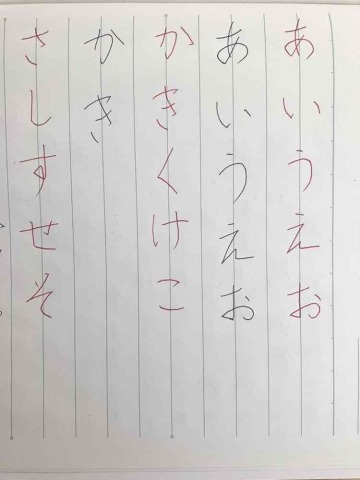 あいうえお
あいうえお
かきくけこ
かき
さしすせそ